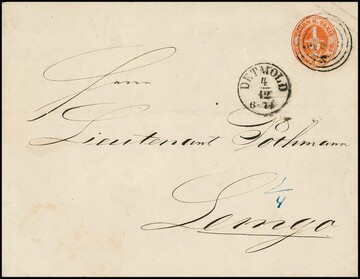 DETMOLD
4/12
6-7
Herrn
Lieutenant Pothmann
1/4
Lemgo